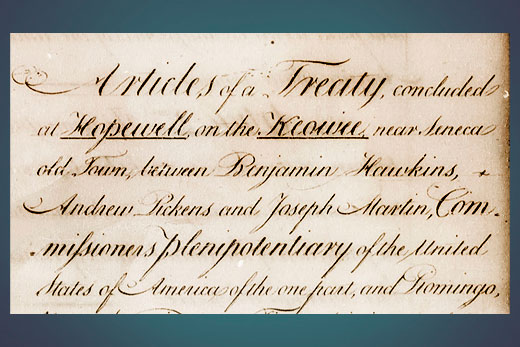 Articles of a Treaty, concluded
at Hopewell, on the Keowee, near Seneca
old Town, between Benjamin Hawkins,
Andrew Pickens and Joseph Martin, Com-
-missioners plenipotentiary of the United
States of America of the one part, and Piomingo,